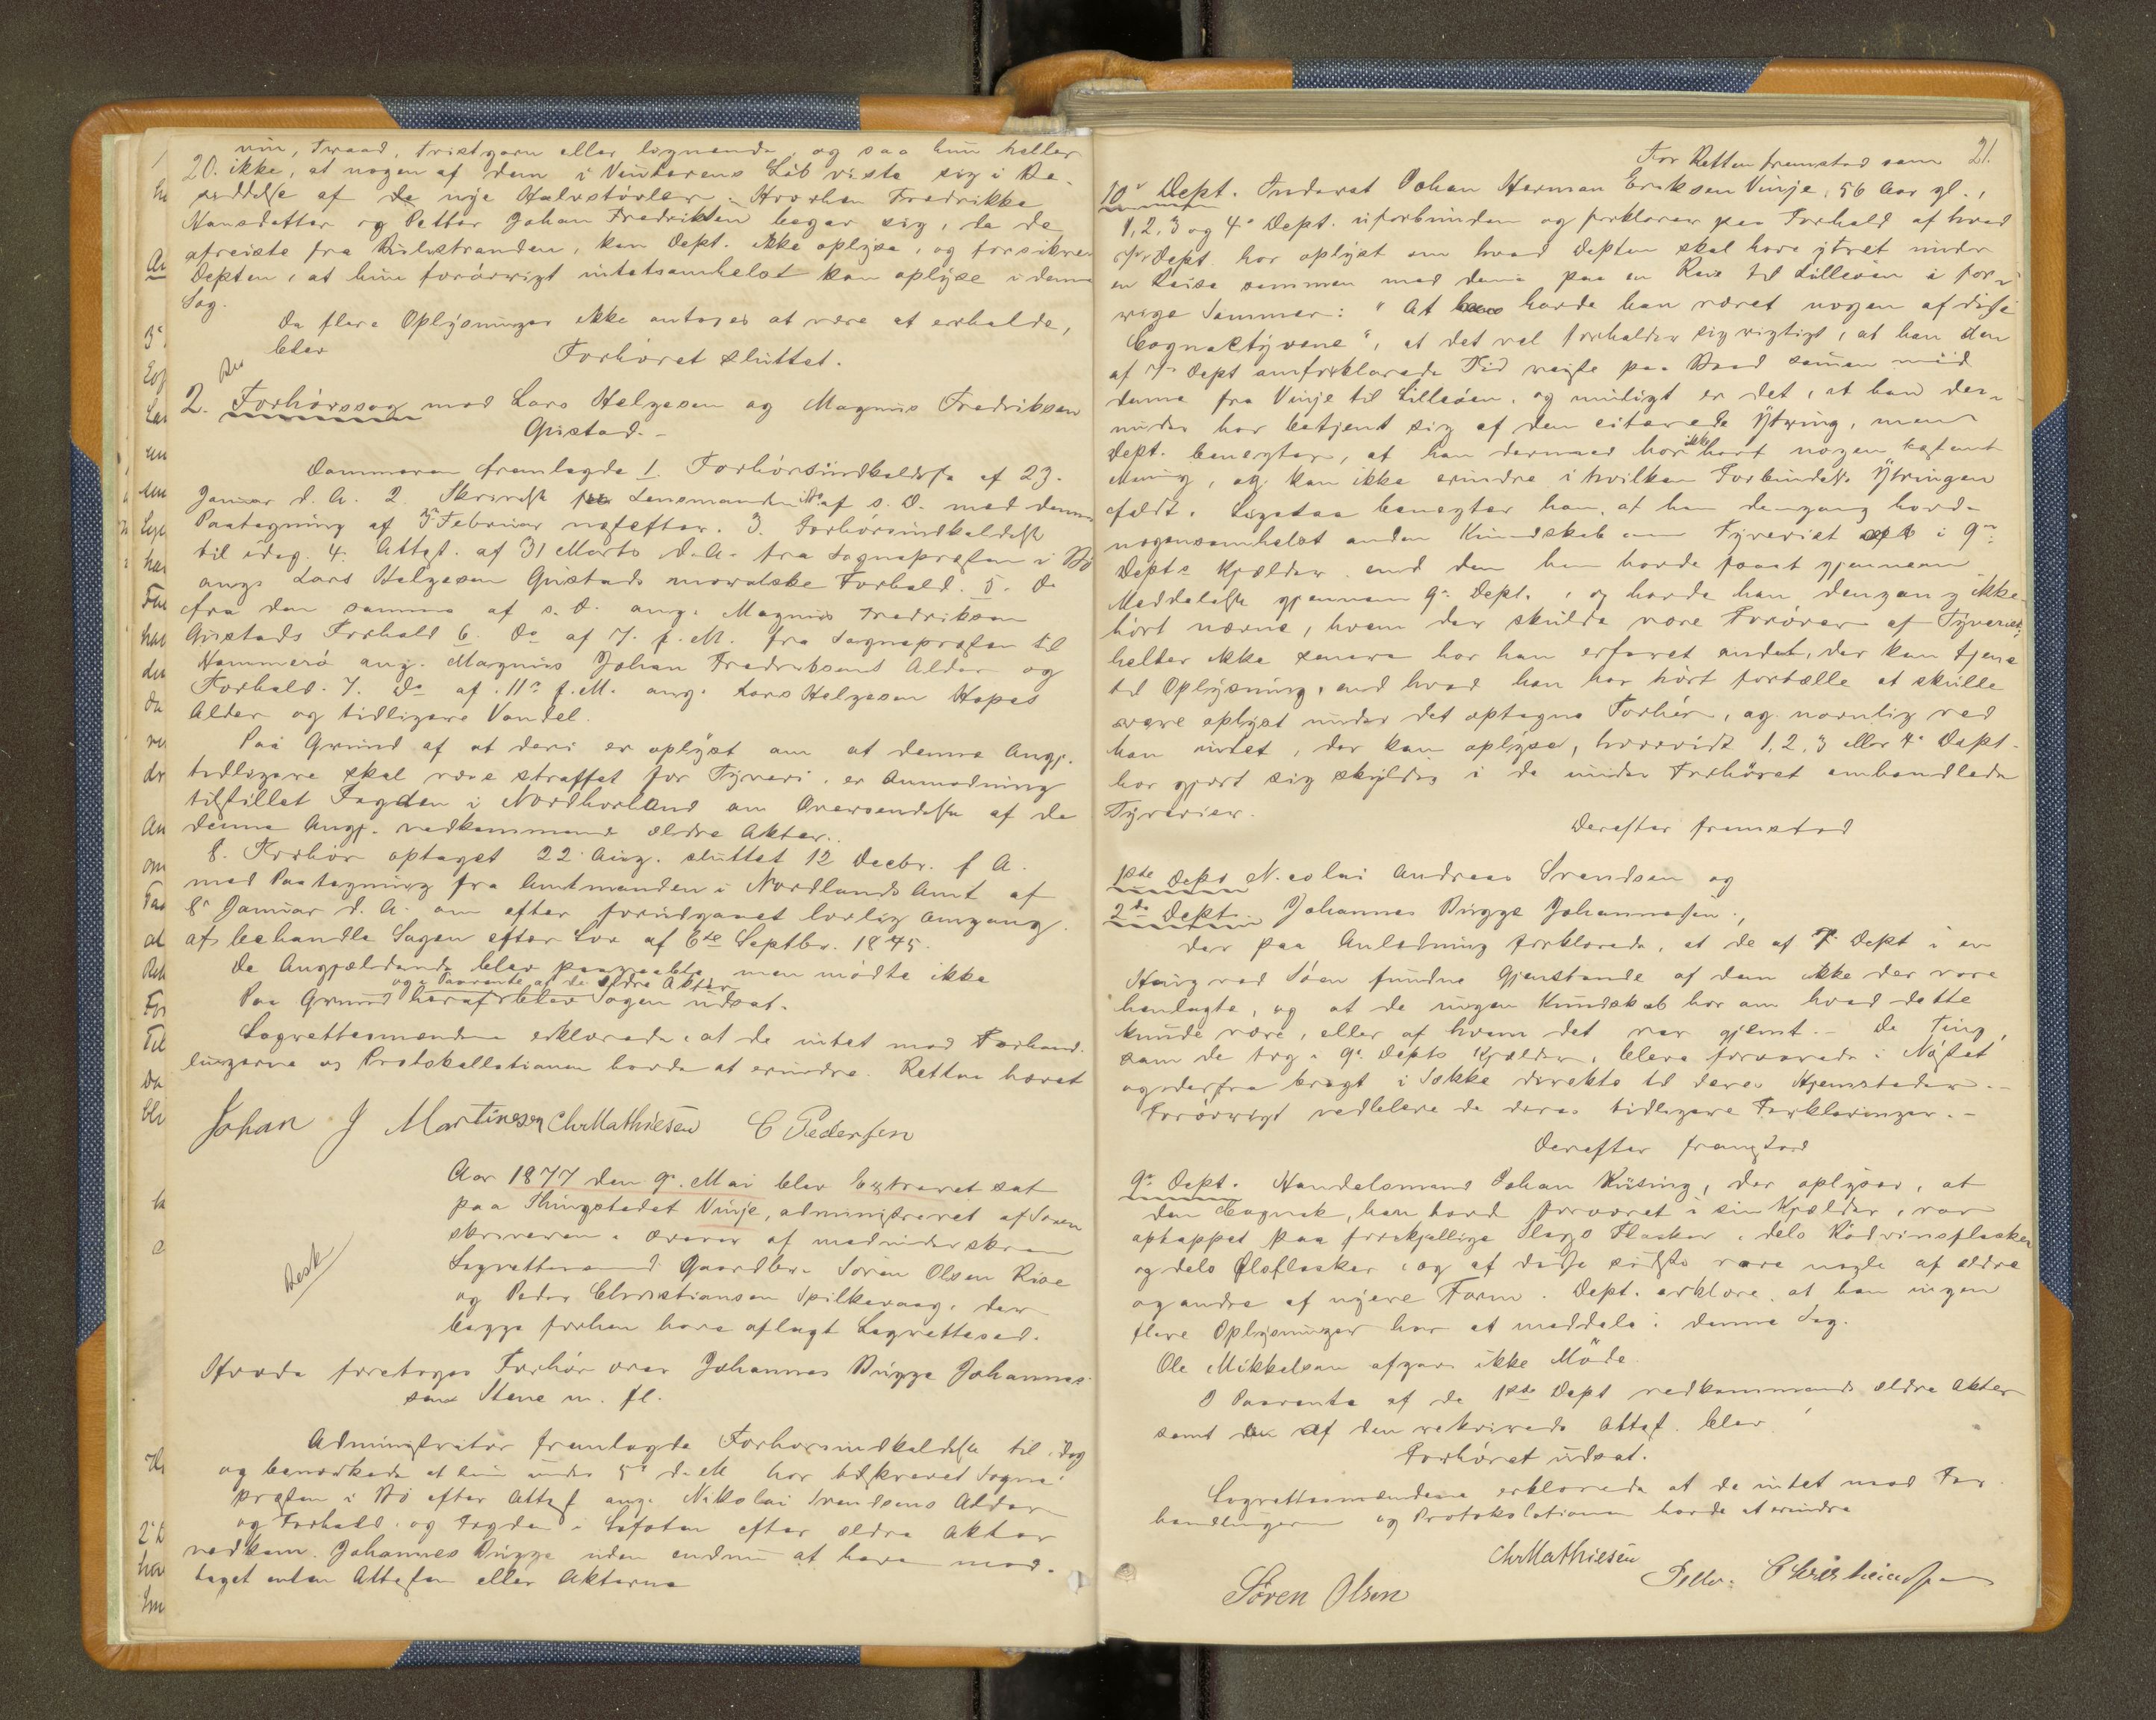 vin, Traad, Tristgarn eller lignende, og saa hun heller
20. ikke, at nogen af dem i Ventorens Lib viste sig i Be-
siddelse af de nye Halvstøvler. Hvorhen Fredrikke
Hansdatter og Petter Johan Fredriksen begav sig, da de
afreiste fra Rishstranden, kan Dept. ikke oplyse, og forsikrer
Depten, at hun forøvrigt intetsomhelst kan oplyse i denne
Sag.
Da flere Oplysninger ikke antages at være at erholde,
blev
Forhøret sluttet.
2. Forhørssag mod Lars Helgesen og Magnus Fredriksen
Guistad.-
Dommeren fremlagde 1. Forhørsindkaldelse af 23.
Januar d. A. 2. Skrivelse Lensmanden af s. D. med dennes
Paategning af 5 Februar næstefter. 3. Forhørsindkaldelse
til idag. 4. Attest. af 31 Marts d. A. fra Sognepræsten i Bø
ang. Lars Helgesen Guistads moralske Forhold. 5. do
fra den samme af s. D. ang. Magnus Fredriksen
Guistads Forhold 6. do af 7. f. M. fra Sognepræsten til
Hammerø ang. Magnus Johan Fredriksens Alder og
Forhold. 7. do af 11te f. M. ang. Lars Helgesen Hopes
Alder og tidligere Vandel.
Paa Grund af at deri er oplyst om at denne Angj.
tidligere skal være straffet for Tyveri, er Anmodning
tilstillet Fogden i Nordhorland om Oversendelse af de
denne Angj. vedkommende ældre Akter.
8. Forhør optaget 22 Aug. sluttet 12 Decbr. f A.
med Paategning fra Amtmanden i Nordlands Amt af
8de Januar d. A. om efter forudgaaet lovlig Omgang
at behandle Sagen efter Lov af 6te Septbr. 1845.
De Angjældende blev paaraabte, men mødte ikke
og i Paavente af de ældre Akter
Paa Grund heraf blev Sagen udsat.
Lagrettesmændene erklærede, at de intet mod Forhand-
lingerne og Protokollationen havde at erindre. Retten hævet
Johan J Martinesen Chr Mathiesen C Pedersen
Aar 1877 den 9de Mai blev Extraret sat
paa Thingstedet Vinje, administreret af Soren
skriveren i Overvær af medunderskrevne
Lagrettesmænd Gaardbr. Søren Olsen Rise
og Peder Christiansen Spilkevaag, der
begge forhen have aflagt Lagrettesed.
Besk
Hvorda foretoges Forhør over Johannes Bugge Johannes-
sen Stene m. fl.
Administrator fremlagde Forhørsindkaldelse til idag
og bemærkede at han under 5te d. M. har tilskrevet Sogne-
præsten i Bø efter Attest ang. Nikolai Svendsens Alder
og Forhold og Fogden i Lofoten efter ældre Akter
vedkom. Johannes Bugge uden endnu at have mod-
taget enten Attesten eller Akterne
21.
For Retten fremstod som
10de Dept. Inderst Johan Herman Eriksen Vinje, 56 Aar gl.,
1, 2, 3 og 4de Dept. uforbunden og forklarer paa Forhold af hvad
Dept. har oplyst om hvad Depten skal have ytret under
en Reise sammen med denne paa en Reise til Lilleøen i for-
rige Sommer: "At havde han været nogen af disse
Cognactyvene", at det vel forholder sig rigtigt, at han den
af 7de Dept omforklarede Tid reiste paa Baad samen med
denne fra Vinje til Lilleøen, og muligt er det, at han der-
under har betjent sig af den citerede Ytring, men
Dept. benegter, at han dermed har ikke havt nogen bestemt
Mening, og kan ikke erindre i hvilken Forbindelse Ytringen
faldt. Ligesaa benegter han, at han dengang havde
nogensomhelst anden Kundskab om Tyveriet i 9de
Depts Kjælder, end den han havde faaet gjennem
Meddelelse gjennem 9de Dept., og havde han dengang ikke
hørt nævne, hvem der skulde være Forøver af Tyveriet;
heller ikke senere har han erfaret andet, der kan tjene
til Oplysning, end hvad han har hørt fortælle at skulle
være oplyst under det optagne Forhør, og navnlig ved
han intet, der kan oplyse, hvorvidt 1, 2, 3 eller 4de Dept.
har gjort sig skyldig i de under Forhøret omhandlede
Tyverier.
Derefter fremstod
1ste Dept Nicolai Andreas Svendsen og
2de Dept. Johannes Bugge Johannessen,
der paa Anledning forklarede, at de af 7. Dept i en
Haug ved Søen fundne Gjenstande af dem ikke der vare
henlagte, og at de ingen Kundskab har om hvad dette
kunde være, eller af hvem det var gjemt.- De Ting,
som de tog i 9de Depts Kjælder, bleve forvarede i Nøstet
og derfra bragt i Sække direkte til deres Hjemsteder.-
Forøvrigt vedbleve de deres tidligere Forklaringer.-
Derefter fremstod
9de Dept. Handelsmand Johan Küsing, der oplyser, at
den Cognak, han havde forvaret i sin Kjælder, var
aftappet paa forskjellige Slags Flasker, dels Rødvinsflasker
og dels Ølflasker, og af disse sidste vare nogle af ældre
og andre af nyere Form. Dept. erklære, at han ingen
flere Oplysninger har at meddele i denne Sag.
Ole Mikkelsen afgav ikke Møde.
I Paavente af de 1ste Dept vedkommende ældre Akter
samt af den rekvirerede Attest. blev
Forhøret udsat.
Lagrettesmændene erklærede at de intet mod For-
handlingerne og Protokolationen havde at erindre
Chr Mathiesen
Søren Olsen Peder Christiansen